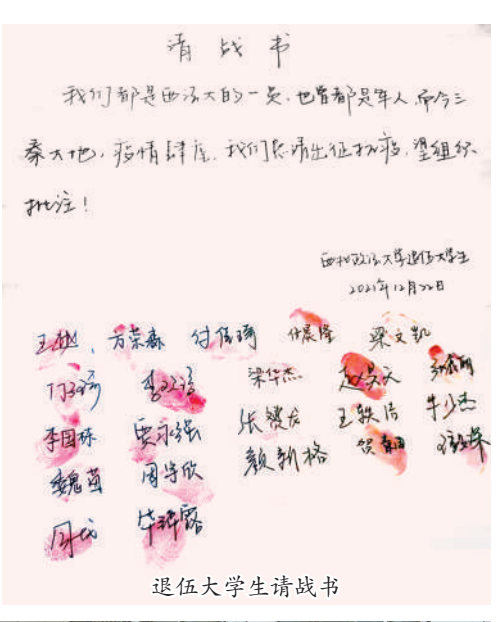 请战书
我们都是西法大的一员,也曾都是军人,而今三
秦大地,疫情肆虐,我们恳请出征抗疫,望组织
批注!
西北政法大学退伍大学生
2021年12月22日
王越、万荣森 付佳琦 仵晨隆 梁文凯
梁华杰
李国栋 贾永强 张 龙 王轶 牛少杰
魏 周宇欣 颜新格 贺
周 毕
退伍大学生请战书